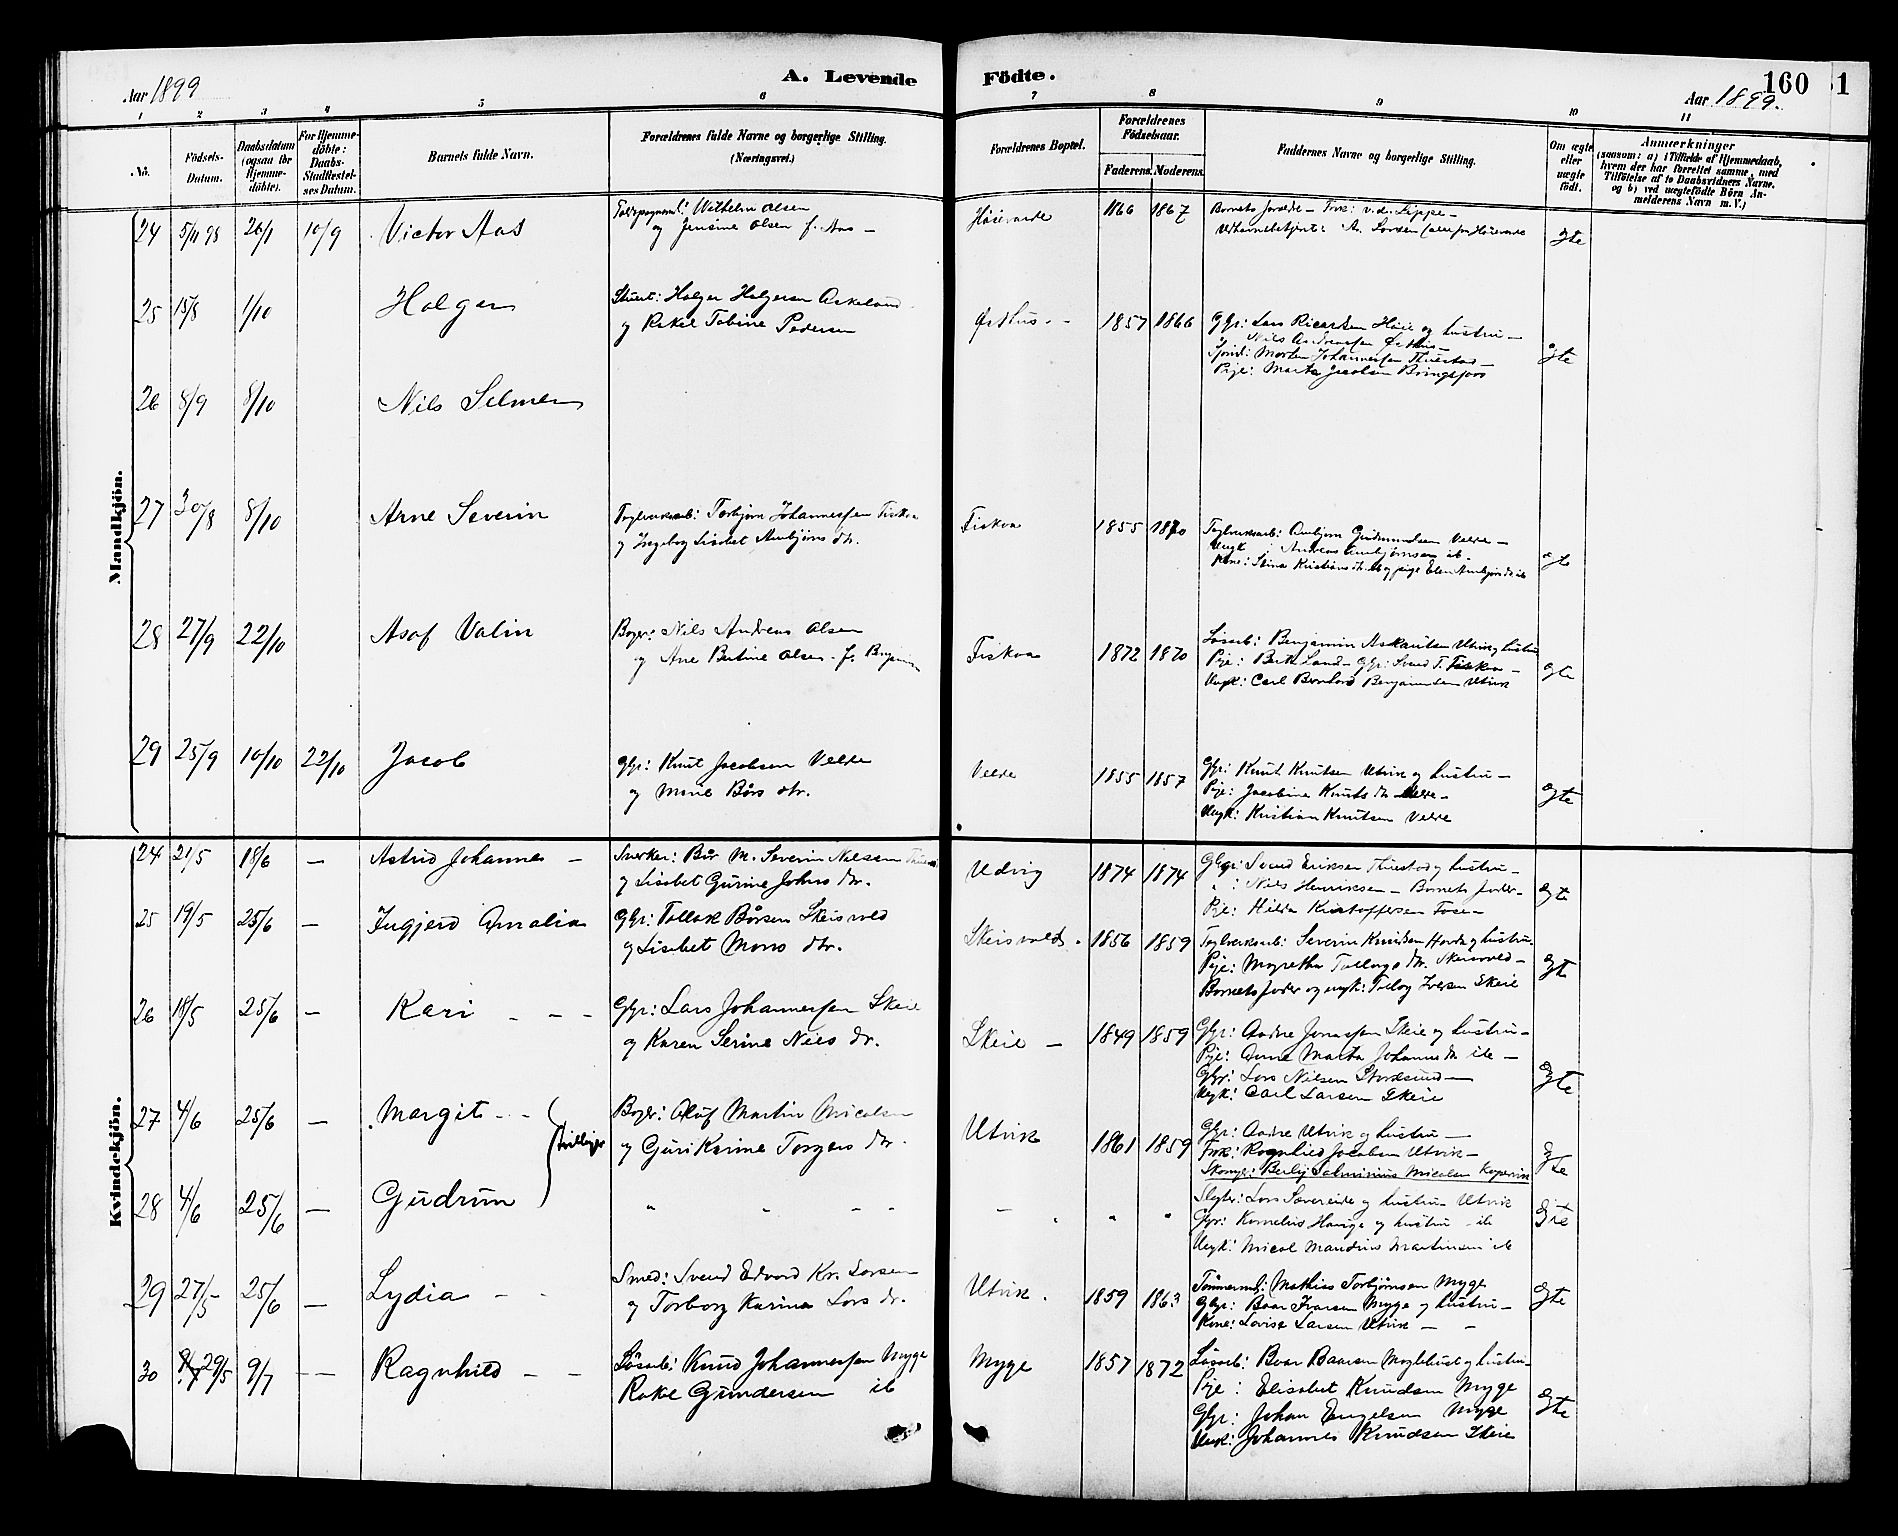 Aar 1899
A. Levende
Födte.
160
1
Aar 1899.
1 2 3 4 5 6 7 8 9 10 11
No.
Födsels-Datum.
Daabsdatum (ogsaa for Hjemme-döbte).
For Hjemme-döbte: Daabs-Stadfæstel-ses Datum.
Barnets fulde Navn.
Forældrenes fulde Navne og borgerlige Stilling.
(Næringsvei.)
Forældrenes Bopæl.
Forældrenes Födselsaar.
Faderens. Moderens.
Faddernes Navne og borgerlige Stilling.
Om ægte eller uægte födt.
Anmærkninger
(saasom: a) i Tilfælde af Hjemmedaab,
hvem der har forrettet samme, med
Tilföielse af to Daabsvidners Navne,
og b) ved uægtefödte Börn An-
melderens Navn m. V.)
Mandkjön.
24 5/11 98 26/1 10/9 Victor Aas Wilhelm Olsen
og Jensine Olsen f. Aas —
1866 1867
ægte
25 15/8 1/10 Holger Holger Holgersen Askeland
og Rakel Tobine Pedersen
Østhus 1857 1866 Gbr: Lars Ricartsen Høie og hustru —
Morten Johannessen Thuestad —
Pige: Marta Jacobsen Bringsjord
ægte
26 8/9 8/10 Nils Selmer
27 30/8 8/10 Arne Severin Teglverksarb: Torbjørn Johannessen Fiskaa
og Ingeborg Lisabet Arnbjørns dtr.
Fiskaa 1855 1870 Teglverksarb: Arnbjørn Gudmundsen Velde —
Ungk: Andreas Arnbjørnsen ib.
Kone: Stina Kristians dtr.
ægte
28 27/9 22/10 Asof Valin Nils Andreas Olsen
og Ane Bertine Olsen f.
Fiskaa 1872 1870 Benjamin Utvik og hustru
Pige: Berta Gbr: Svend T. Fiskaa —
Ungk: Carl Bernhard Benjaminsen Utvik
ægte
29 25/9 10/10 22/10 Jacob Gbr: Knut Jacobsen Velde
og Marie Bårs dtr.
Velde 1855 1857 Gbr: Knut Knutsen Utvik og hustru —
Pige: Jacobine Knuts dtr Velde —
Ungk: Kristian Knutsen Velde
ægte
Kvindekjön.
24 21/5 18/6 — Astrid Johanne — Snedker: Bår M. Severin Nielsen
og Lisabet Gurine Johns dtr.
Udvig 1874 1874 Gbr: Svend Eriksen Thuestad og hustru —
": Niels Henriksen — Barnets fader —
Pige: Hilda Kristoffersen
ægte
25 19/5 25/6 — Ingjerd Amalia Gbr: Tollak Bårsen Skeisvold
og Lisabet Mons dtr.
Skeisvold. 1856 1859 Teglverksarb: Severin Knudsen og hustru.
Pige: Magretha dtr. Skeisvold —
Barnets fader og ungk: Skeie
ægte
26 18/5 25/6 — Kari — — — Gbr: Lars Johannessen Skeie
og Karen Serine Niels dtr.
Skeie — 1849 1859 Gbr: Aadne Jonassen Skeie og hustru —
Pige: Anne Marta Johanns dtr ib —
Gbr: Lars Nilsen Stordsund —
Ungk: Carl Larsen Skeie
ægte
27 4/6 25/6 — Margit — — Tvillinger Olaf Martin Micalsen
og Guri Karine Torgers dtr.
Utvik 1861 1859 Gbr: Aadne Utvik og hustru —
Frk: Ragnhild Jacobsen Utvik —
Salminius Micalsen Kopervik
ægte
28 4/6 25/6 — Gudrun " " " "
— . " " Lars Sævereide og hustru — Utvik
Gbr: Kornelius Hauge og hustru — ib
Ungk: Mical Mandius Martinsen ib
ægte
29 27/5 25/6 — Lydia — — Smed: Svend Edvard Kr. Larsen
og Torborg Karine Lars dr.
Utvik. 1859 1863 Tømmermd: Mathias Torbjørnsen Myge
Gbr: Baar Ivarsen Myge og hustru —
Kone: Lovise Larsen Utvik — —
ægte
30 29/5 9/7 — — Ragnhild — — Løsarb: Knud Johannessen Myge
Rakel Gundersen ib
Myge 1857 1872 Løsarb: Baar Baarsen og hustru
Pige: Elisabet Knudsen Myge
Gbr: Johan Engelsen Myge
Ungk: Johannes Knudsen Skeie
ægte